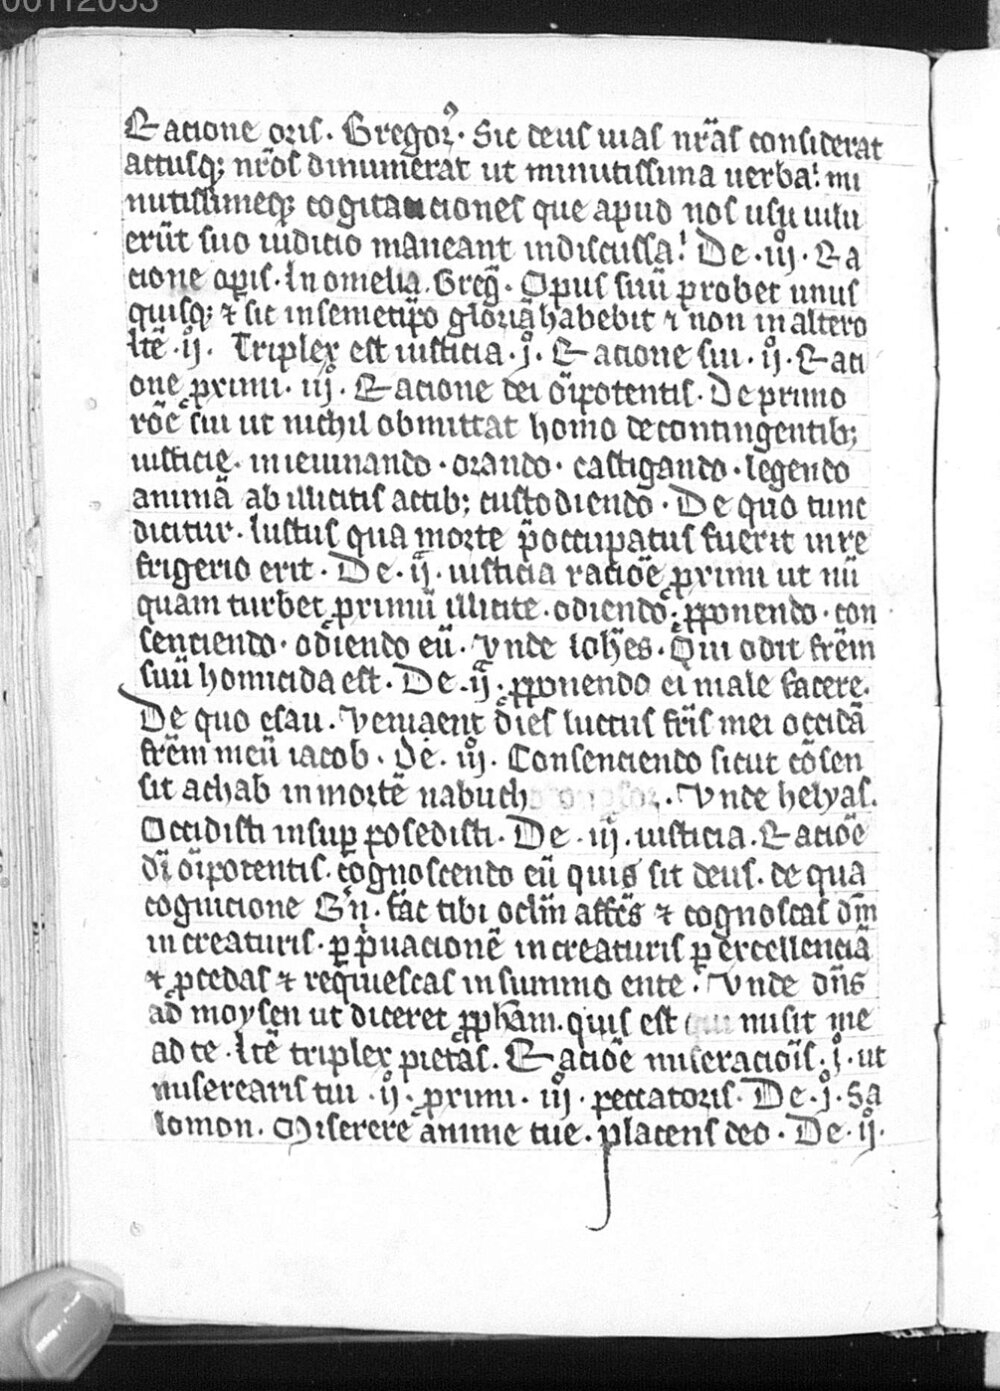 00112053
Racione oris. Gregor᷒. Sic deus uias nr̄as considerat
actusq; nr̄os dinumerat ut minutissima uerba! mi
nutissimeq; cogitaciones que apud nos usu uilu
erūt suo iudicio maneant indiscussa! De .iijº. Ra
cione op̄is. In omelia. Greḡ. Opus suū probet unus
quisq; ⁊ sic in semetip̄o gloriā habebit ⁊ non in altero
Itē .ij. Triplex est iusticia .jº. Racione sui. ijº. Raci
one ꝓximi. iijº. Racione dei oīpotentis. De primo
rōe sui ut nichil obmittat homo de contingentib;
iusticie. in ieiunando. orando. castigando. legendo
animā ab illicitis actib; custodiendo. De quo tunc
dicitur. Iustus qua morte p̄occupatus fuerit in re
frigerio erit. De .ijª. iusticia raciōe ꝓximi ut nū
quam turbet ꝓximū illicite. odiendo. ꝓponendo. con
senciendo. odiendo eū. Vnde Ioh̄es. Qui odit fr̄em
suū homicida est. De .ijª. ꝓponendo ei male facere.
De quo esau. Venient dies luctus fr̄is mei occidā
fr̄em meū iacob. De. iijº. Consenciendo sicut cōsen
sit achab in mortē nabuch . Vnde helyas.
Occidisti insuꝑ posedisti. De .iijª. iusticia. Raciōe
dī oīpotentis. cognoscendo eū quis sit deus. de qua
cognicione B'n̄. fac tibi oclm̄ affēs ⁊ cognoscas dm̄
in creaturis. ꝑ p̄uacionē in creaturis ꝑ excellenciā
⁊ ꝓcedas ⁊ requiescas in summo ente. Vnde dn̄s
ad moysen ut diceret ꝓpham. quis est qui misit me
ad te. Itē triplex pietas. Raciōe miseraciōis .jº. ut
miserearis tui .ijº. ꝓximi. iijº. peccatoris. De .jº. Sa
lomon. Miserere anime tue. placens deo. De .ijº.